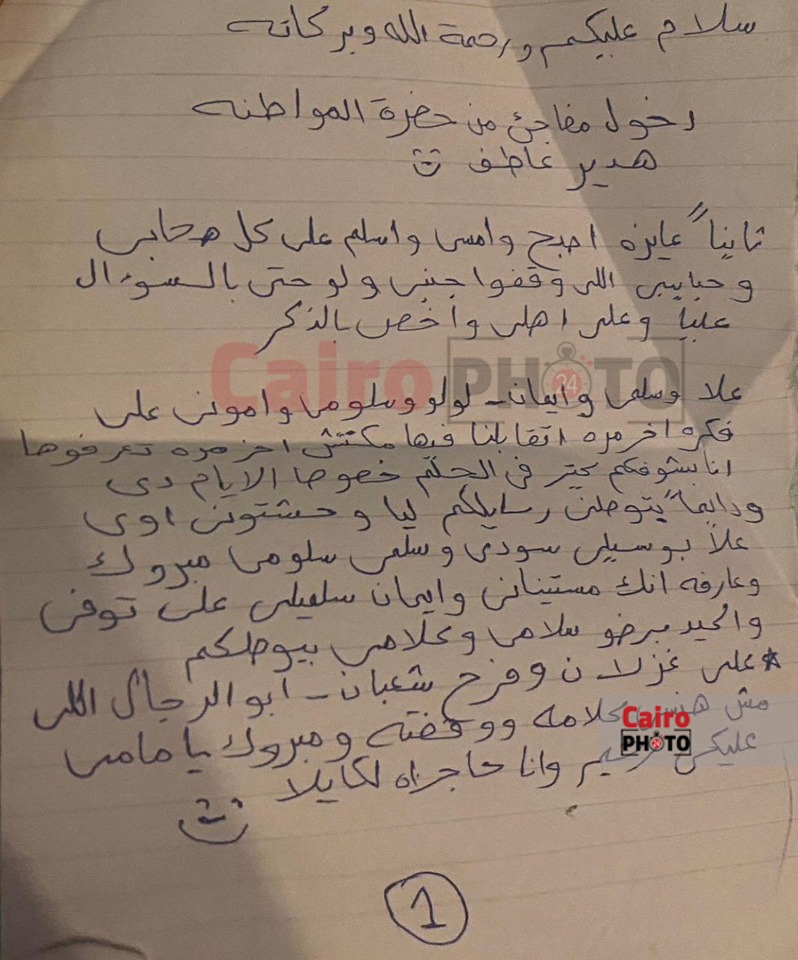 سلام عليكم ورحمة الله وبركاته
دخول مفاجئ من حضرة المواطنه
هدير عاطف
ثانياً عايزه اصبح وامسى واسلم على كل صحابى
وحبايبى اللى وقفوا جنبى ولو حتى بالسوءال
عليا وعلى اهلى وأخص بالذكر
Cairo PHOTO 24
علا وسلمى وايمان - لولو وسلومى وامونى على
فكره اخر مره اتقابلنا فيها مكنتش اخر مره تعرفوها
انا بشوفكم كتير فى الحلم خصوصا الايام دى
ودايماً يتوصلنى رسايلكم ليا وحشتونى اوى
علا بوسيلى سودى وسلمى سلومى مبروك
وعارفه انك مستينانى وايمان سلميلى على توفى
والحيد برضو سلامى وكلامى بيوصلكم
* على غزلان وفرح شعبان - ابو الرجال اللى
مش هنسى كلامه ووقفته ومبروك يا مامى
عليكى وانا حاجزاه لكايلا
Cairo PHOTO
1